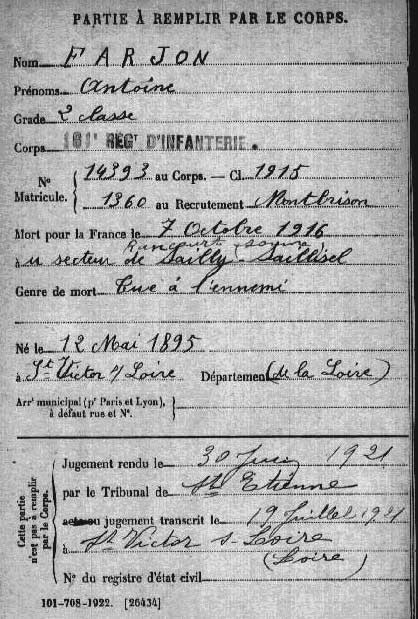 PARTIE À REMPLIR PAR LE CORPS.
Nom FARJON
Prénoms Antoine
Grade 2 classe
Corps 161e REGt D'INFANTERIE.
No Matricule. { 14393 au Corps. — Cl. 1915
1360 au Recrutement Montbrison
Mort pour la France le 7 Octobre 1916
Rancourt (Somme)
à u secteur de Sailly-Saillisel
Genre de mort Tué à l'ennemi
Né le 12 Mai 1895
à St Victor s/ Loire Département (de la Loire)
Arrt municipal (pr Paris et Lyon), à défaut rue et No. }
Cette partie n'est pas à remplir par le Corps.
Jugement rendu le 30 Juin 1921
par le Tribunal de St Etienne
acte ou jugement transcrit le 19 Juillet 1921
à St Victor s- Loire
(Loire)
No du registre d'état civil
101-708-1922. [26434]